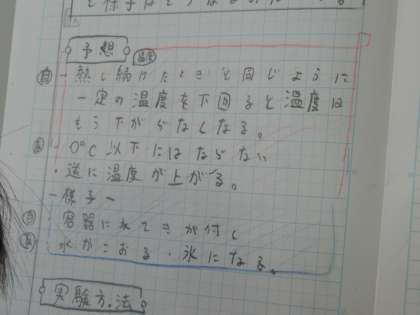 予想
温度
自・熱し続けたときと同じように
一定の温度を下回ると温度は
もう下がらなくなる。
0℃以下にはならない
・逆に温度が上がる。
ー様子ー
・容器に水てきが付く
・水がこおる・氷になる。
実験方法